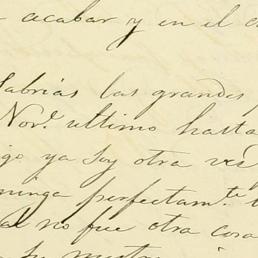 acabar y en el
Sabrias las grandes
Nov.e ultimo hasta
go ya soy otra vez
ninga perfectam.te
al no fue otra cosa